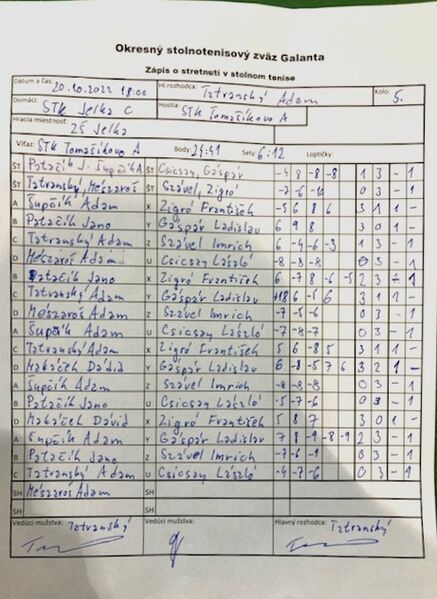 Okresný stolnotenisový zväz Galanta
Zápis o stretnutí v stolnom tenise
Dátum a čas: 20.10.2022 18:00 Hl.rozhodca: Tatranský Adam Kolo: 5.
Domáci: STK Jelka C Hostia: STK Tomašíkovo A
Hracia miestnosť: ZŠ Jelka
Víťaz: STK Tomašíkovo A Body: Sety: 6:12 Loptičky:
ŠT Patačik J. Šupčik A ŠT Csicsay, Gaspár -4 8 -8 -8 1 3 - 1
ŠT Tatranský, Mészaroš ŠT Szável, Zigró -7 -6 -10 0 3 - 1
A Šupčik Adam X Zigró František -5 6 8 6 3 1 1 -
B Patačik Jano Y Gaspár Ladislav 6 9 8 3 0 1 -
C Tatranský Adam Z Szável Imrich 6 -4 -6 -3 1 3 - 1
D Mészaroš Adam U Csicsay László -8 -8 -8 0 3 - 1
B Patačik Jano X Zigró František 6 -7 8 -6 -5 2 3 - 1
C Tatranský Adam Y Gaspár Ladislav 6 -5 6 3 1 1 -
D Mészaroš Adam Z Szável Imrich -7 -5 -6 0 3 - 1
A Šupčik Adam U Csicsay László -7 -8 -7 0 3 - 1
C Tatranský Adam X Zigró František 5 6 -8 5 3 1 1 -
D Makáček Dávid Y Gaspár Ladislav 6 -8 -5 7 6 3 2 1 -
A Šupčik Adam Z Szável Imrich -8 -8 -8 0 3 - 1
B Patačik Jano U Csicsay László -5 -7 -6 0 3 - 1
D Makáček Dávid X Zigró František 5 8 7 3 0 1 -
A Šupčik Adam Y Gaspár Ladislav 7 8 -9 -8 -9 2 3 - 1
B Patačik Jano Z Szável Imrich -7 -6 -9 0 3 - 1
C Tatranský Adam U Csicsay László -4 -7 -6 0 3 - 1
SH Mészaroš Adam SH
SH SH
Vedúci mužstva: Tatranský Vedúci mužstva: Hlavný rozhodca: Tatranský